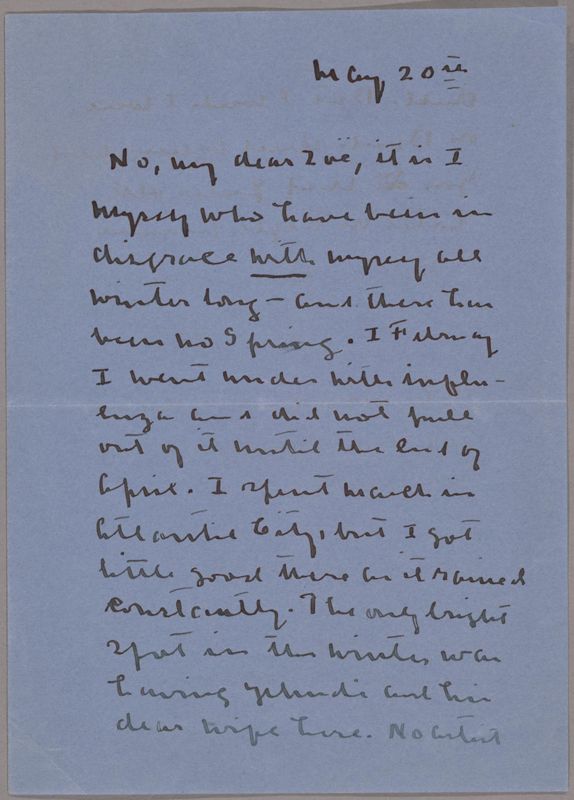 May 20th
No, my dear Zoë, it is I
myself who have been in
disgrace with myself all
winter long – and there has
been no Spring. I February
I went under with influ-
enza and did not pull
out of it until the end of
April. I spent March in
Atlantic City, but I got
little good there as it rained
constantly. The only bright
spot in the winter was
having Yehudi and his
dear wife here. No artist